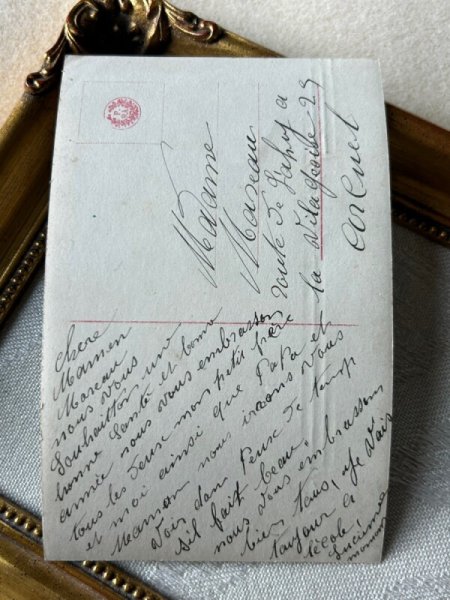 Madame
Mareau
route de a
la Vilageoise 29
Chere
Mamen
Mareau
nous vous
Souhaitton une
bonne Santé et bonne
année nous vous embrasson
tous les deux mon petit frère
et moi ainsi que Papa et
Maman nous irons vous
Voir dan Peux de temp
Sil fait beau,
nous vous embrassons
bien tous, je Vais
toujour a
l'école,
Lucienne